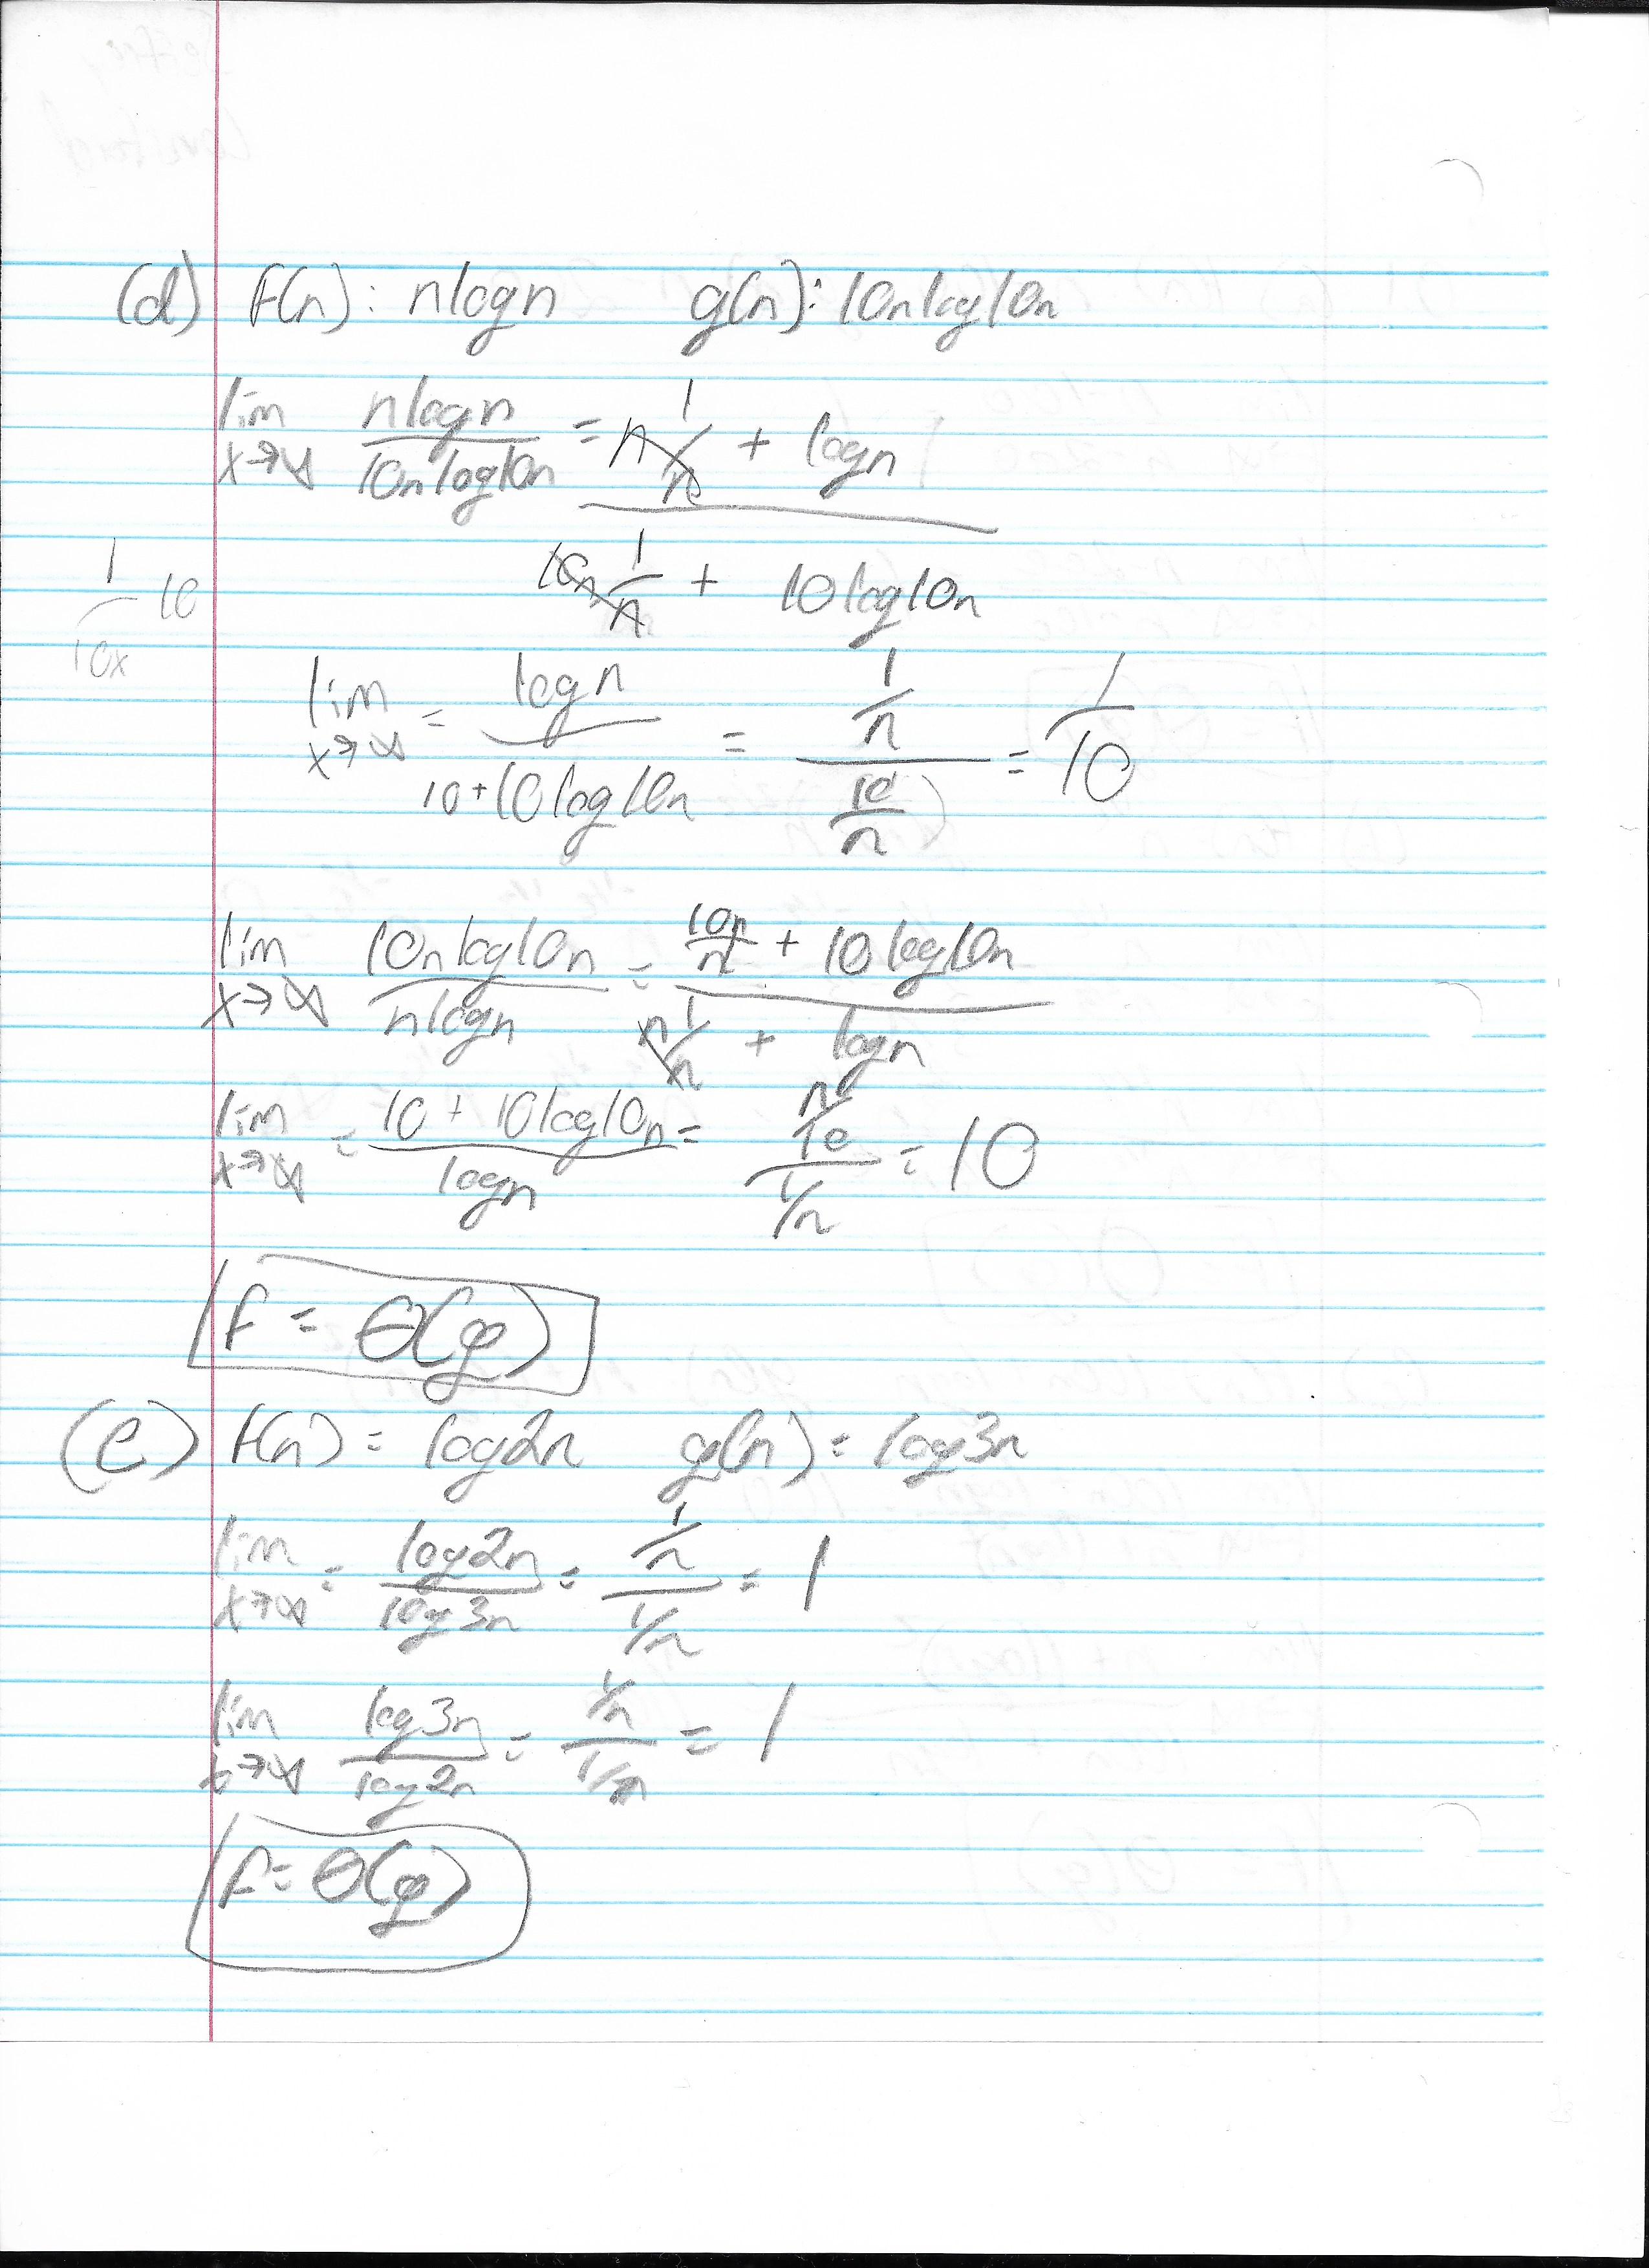 (d) f(n): nlogn g(n): 10nlog10n
lim x→∞ nlogn / 10nlog10n = n 1/n + logn / 10n 1/n + 10log10n
1/10x 10
lim x→∞ = logn / 10+10log10n = 1/n / 10/n = 1/10
lim x→∞ 10nlog10n / nlogn = 10n/n + 10log10n / n 1/n + logn
lim x→∞ = 10 + 10log10n / logn = / 1/n = 10
f = Θ(g)
(e) f(n) = log2n g(n) = log3n
lim x→∞ = log2n / log3n = 1/n / 1/n = 1
lim x→∞ log3n / log2n = 1/n / 1/n = 1
f = Θ(g)